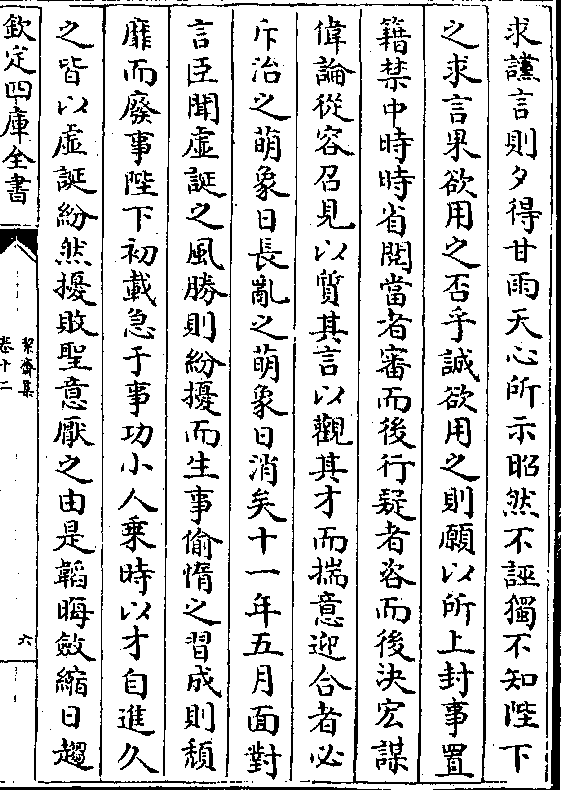 求讜言則夕得甘雨天心所示昭然不誣獨不知陛下
之求言果欲用之否乎誠欲用之則願以所上封事置
籍禁中時時省閱當者審而後行疑者咨而後決宏謀
偉論從容召見以質其言以觀其才而揣意迎合者必
斥治之萌象日長亂之萌象日消矣十一年五月面對
言臣聞虛誕之風勝則紛擾而生事偷惰之習成則頹
靡而廢事陛下初載急于事功小人乗時以才自進久
之皆以虛誕紛然擾敗聖意厭之由是韜晦斂縮日趨
欽定四庫全書
絜齋集
卷十二
六